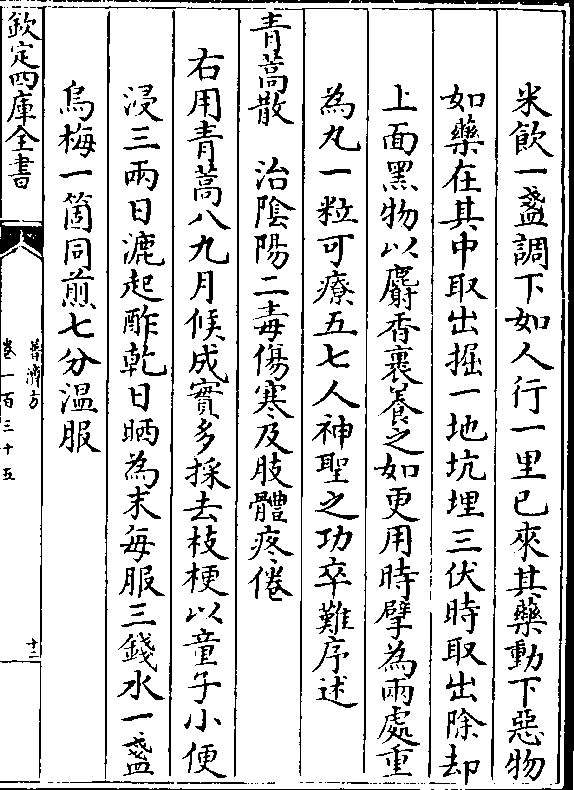 米飲一盞調下如人行一里已來其藥動下惡物
如藥在其中取出掘一地坑埋三伏時取出除却
上面黑物以麝香裹養之如更用時擘為兩處重
為丸一粒可療五七人神聖之功卒難序述
青蒿散　治陰陽二毒傷寒及肢體疼倦
右用青蒿八九月候成實多採去枝梗以童子小便
浸三兩日漉起酢乾日晒為末每服三錢水一盞
烏梅一箇同煎七分溫服
欽定四庫全書
普濟方
卷一百三十五
十二